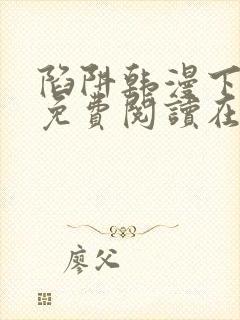 陷阱韩漫下
免費閱讀在
廖父